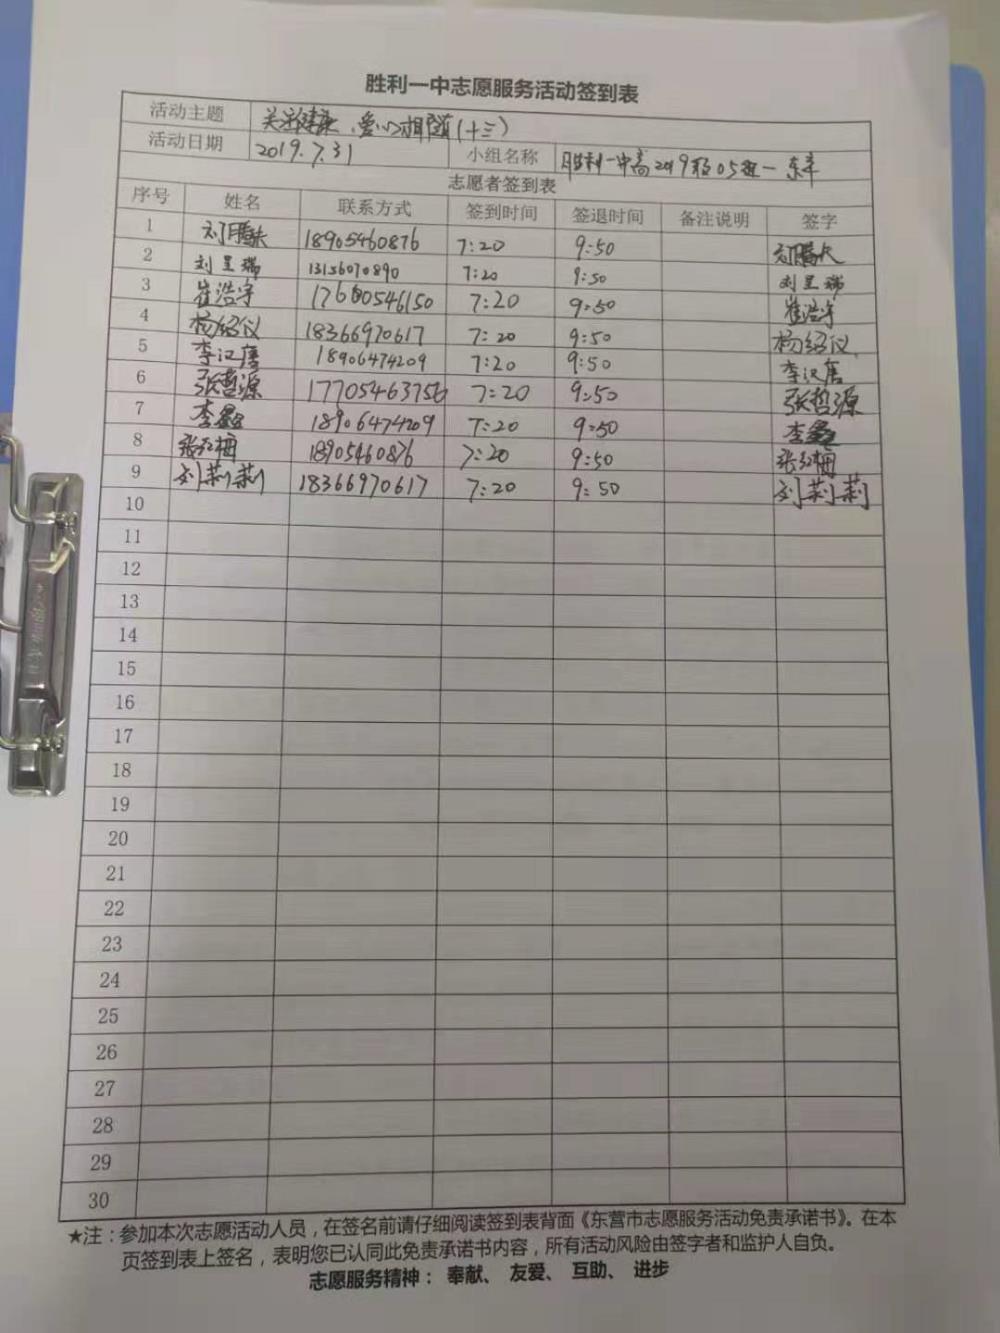 胜利一中志愿服务活动签到表
活动主题 关注健康、爱心相随(十三)
活动日期 2019.7.31 小组名称 胜利一中高2019级05班一东辛
志愿者签到表
序号 姓名 联系方式 签到时间 签退时间 备注说明 签字
1 刘腾夫 18905460876 7:20 9:50 刘腾夫
2 刘昱瑞 13156070890 7:20 9:50 刘昱瑞
3 崔浩宇 17660546150 7:20 9:50 崔浩宇
4 杨绍仪 18366970617 7:20 9:50 杨绍仪
5 李汉唐 18906474209 7:20 9:50 李汉唐
6 张哲源 17705463756 7:20 9:50 张哲源
7 李鑫 18906474209 7:20 9:50 李鑫
8 张红梅 18905460876 7:20 9:50 张红梅
9 刘莉莉 18366970617 7:20 9:50 刘莉莉
10
11
12
13
14
15
16
17
18
19
20
21
22
23
24
25
26
27
28
29
30
★注：参加本次志愿活动人员，在签名前请仔细阅读签到表背面《东营市志愿服务活动免责承诺书》。在本
页签到表上签名，表明您已认同此免责承诺书内容，所有活动风险由签字者和监护人自负。
志愿服务精神： 奉献、 友爱、 互助、 进步